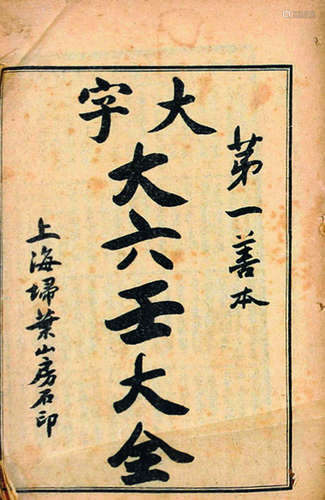 第一善本
大字
大六壬大全
上海埽葉山房石印